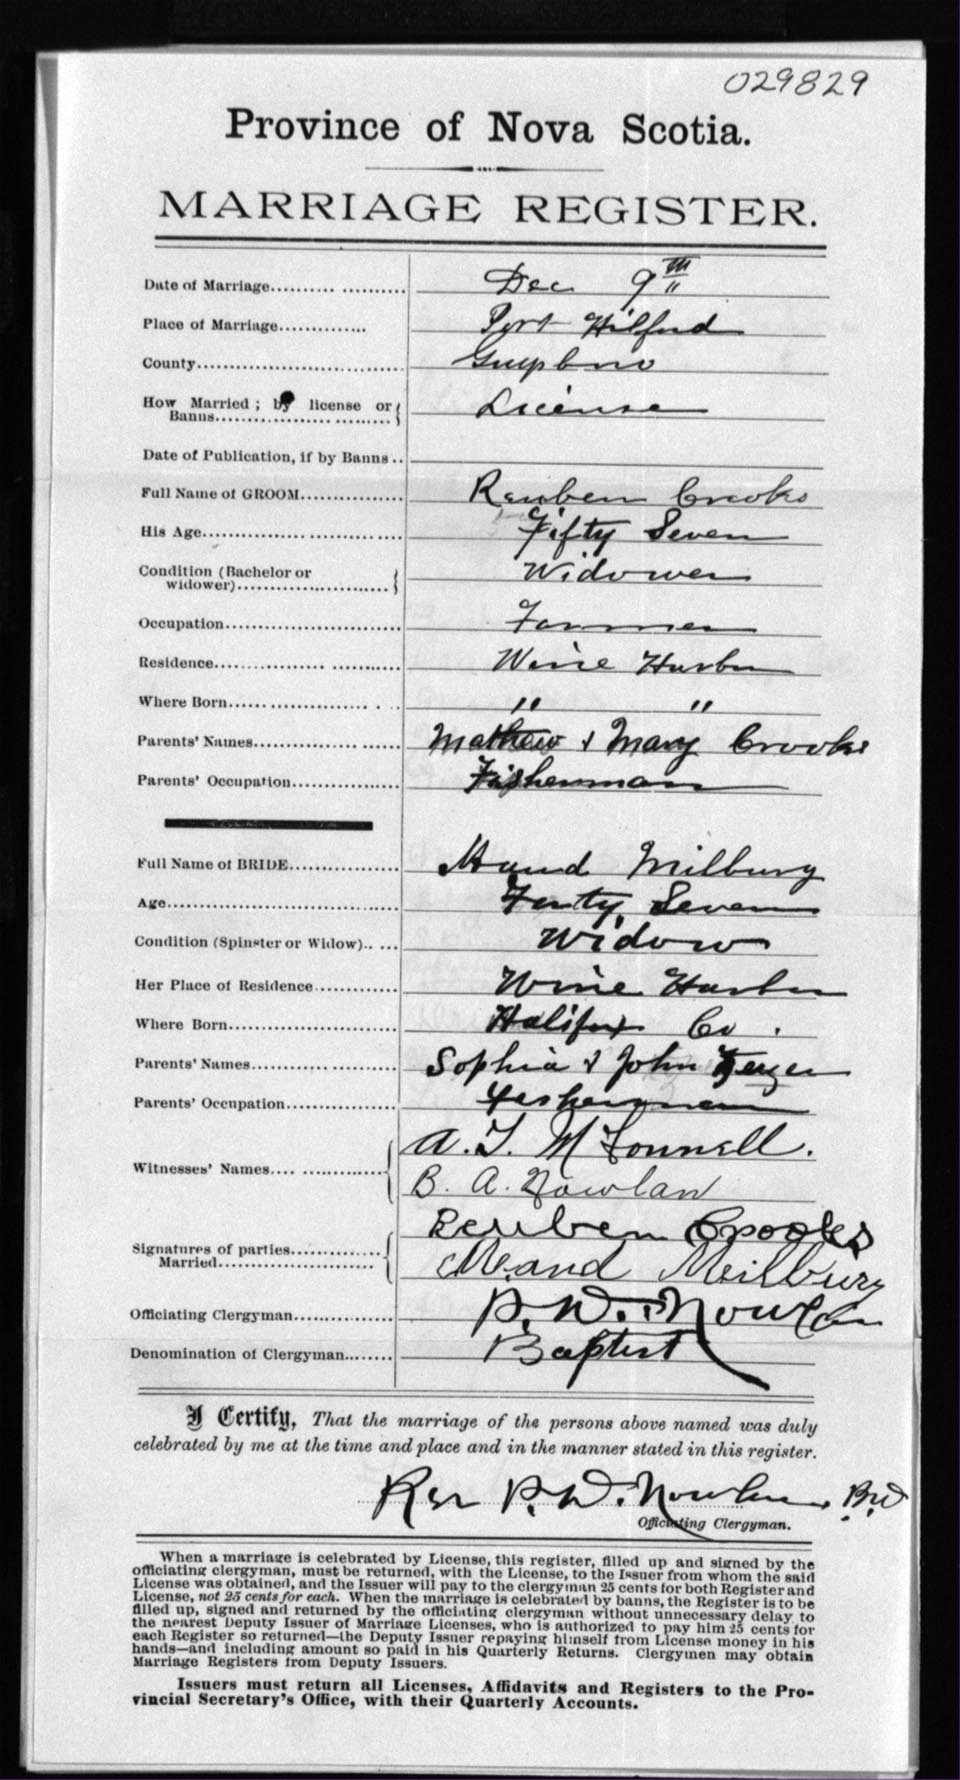 029829
Province of Nova Scotia.
MARRIAGE REGISTER.
Date of Marriage.................... Dec 9TH
Place of Marriage............. Port Hilford
County.............................. Guysboro
How Married; by license or Banns.................... License
Date of Publication, if by Banns..
Full Name of GROOM............... Reuben Crooks
His Age............................. Fifty Seven
Condition (Bachelor or widower)...................... Widower
Occupation.......................... Farmer
Residence........................ Wine Harbor
Where Born...................... " "
Parents' Names.................... Mathew & Mary Crooks
Parents' Occupation................ Fisherman
Full Name of BRIDE............... Maud Milbury
Age................................... Forty Seven
Condition (Spinster or Widow)..... Widow
Her Place of Residence............ Wine Harbor
Where Born......................... Halifax Co.
Parents' Names.................... Sophia & John
Parents' Occupation................ Fisherman
Witnesses' Names.................. A. J. McConnell.
B. A. Nowlan
Signatures of parties Married........................ Reuben Crooks
Meand Meilbury
Officiating Clergyman............... P. W. Nowlan
Denomination of Clergyman........ Baptist
I Certify, That the marriage of the persons above named was duly
celebrated by me at the time and place and in the manner stated in this register.
Rev P. W. Nowlan,
Officiating Clergyman.
When a marriage is celebrated by License, this register, filled up and signed by the
officiating clergyman, must be returned, with the License, to the Issuer from whom the said
License was obtained, and the Issuer will pay to the clergyman 25 cents for both Register and
License, not 25 cents for each. When the marriage is celebrated by banns, the Register is to be
filled up, signed and returned by the officiating clergyman without unnecessary delay to
the nearest Deputy Issuer of Marriage Licenses, who is authorized to pay him 25 cents for
each Register so returned—the Deputy Issuer repaying himself from License money in his
hands—and including amount so paid in his Quarterly Returns. Clergymen may obtain
Marriage Registers from Deputy Issuers.
Issuers must return all Licenses, Affidavits and Registers to the Pro-
vincial Secretary's Office, with their Quarterly Accounts.